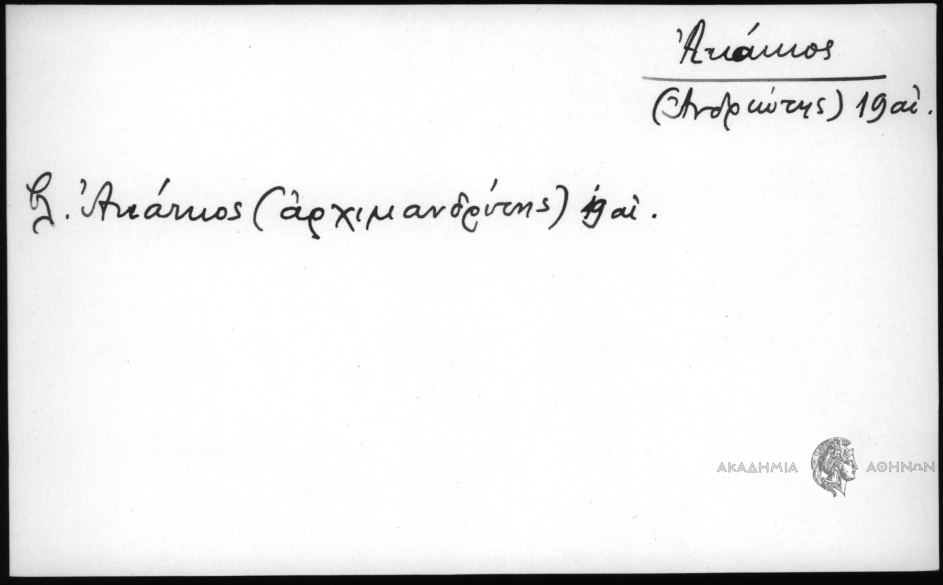 Ἀκάκιος
(Ἀνδριώτης) 19 αἰ.
βλ. Ἀκάκιος (ἀρχιμανδρίτης) 19 αἰ.
ΑΚΑΔΗΜΙΑ ΑΘΗΝΩΝ